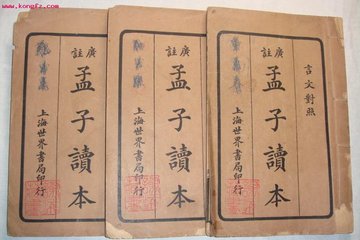 www.kongfz.com
廣註
孟子讀本
上海世界書局印行
廣註
孟子讀本
上海世界書局印行
言文對照
廣註
孟子讀本
上海世界書局印行